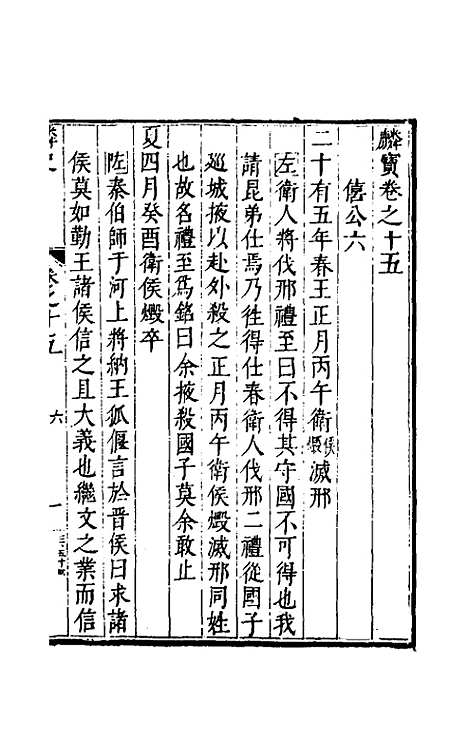 麟寶卷之十五
僖公六
二十有五年春王正月丙午衛侯燬滅邢
左衛人將伐邢禮至曰不得其守國不可得也我
請昆弟仕焉乃徃得仕春衛人伐邢二禮從國子
廵城掖以赴外殺之正月丙午衛侯燬滅邢同姓
也故名禮至爲銘曰余掖殺國子莫余敢止
夏四月癸酉衛侯燬卒
左秦伯師于河上將納王狐偃言於晉侯曰求諸
侯莫如勤王諸侯信之且大義也繼文之業而信
卷之十五
六
一